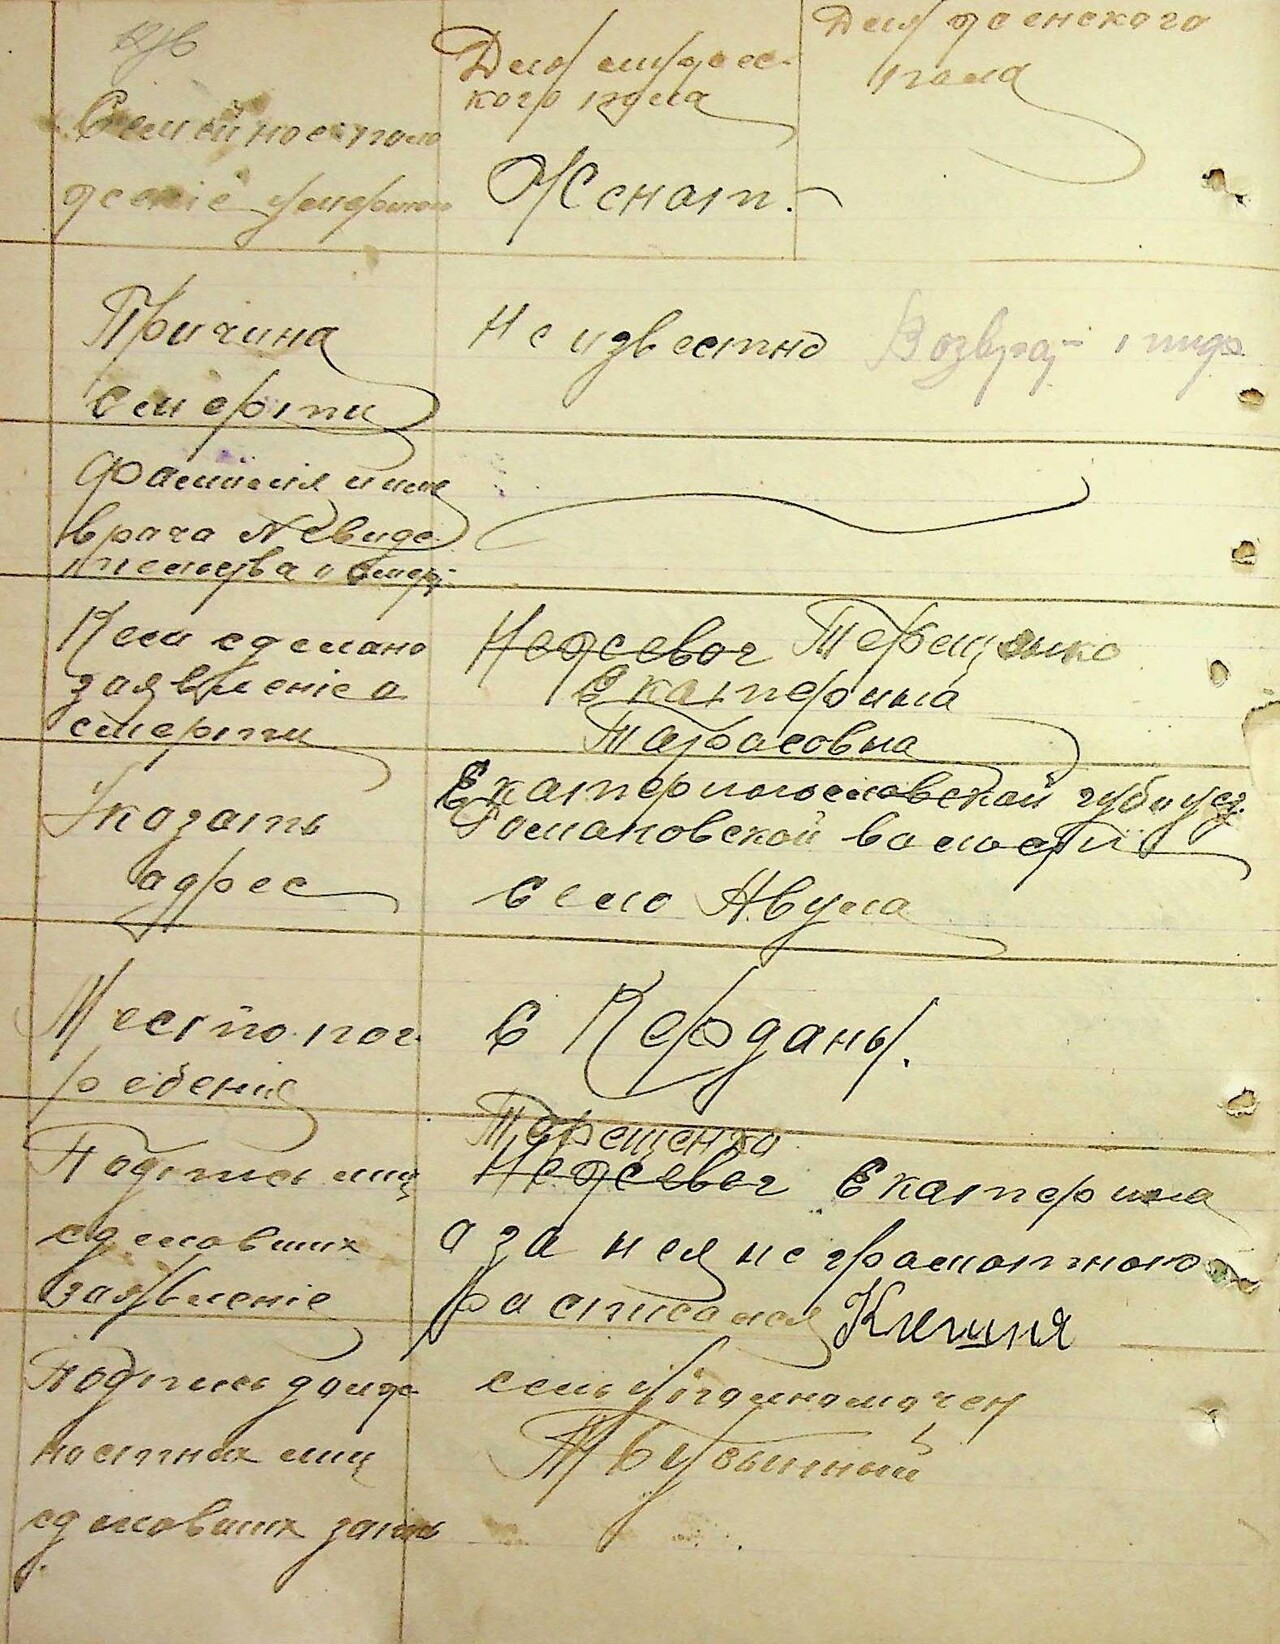 Для мужес-
кого пола
Для женского
пола
Семейное поло
жение умершого
Женат.
Причина
смерти
Не известно
Возвр
тиф
Фамилия и имя
врача
о смер-
Кем сделано
заявление о
смерти
Терещенко
Екатерина
Тарасовна
Указать
адрес
Екатеринославской губ
Романовской воласти
село Авула
Место пог-
ребения
в Керданы.
Подпись лиц
сделавших
заявление
Терещенко
Екатерина
а за нея не грамотною
расписался
Подпись долж-
ностных лиц
сделавших запись
сель уполномочен